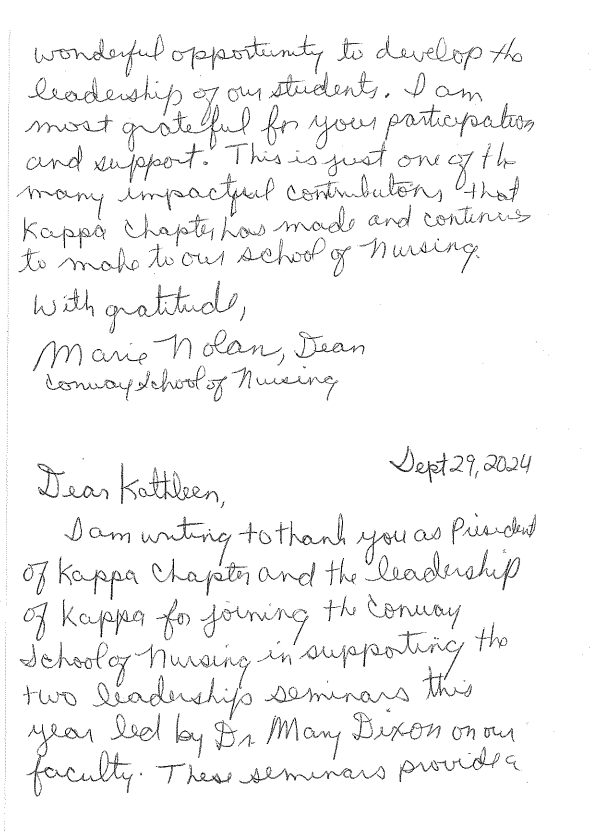 wonderful opportunity to develop the
leadership of our students. I am
most grateful for your participation
and support. This is just one of the
many impactful contributions that
Kappa Chapter has made and continues
to make to our school of Nursing.
With gratitude,
Marie Nolan, Dean
Conway School of Nursing
Sept 29, 2024
Dear Kathleen,
I am writing to thank you as President
of Kappa Chapter and the leadership
of Kappa for joining the Conway
School of Nursing in supporting the
two leadership seminars this
year led by Dr Mary Dixon on our
faculty. These seminars provide a